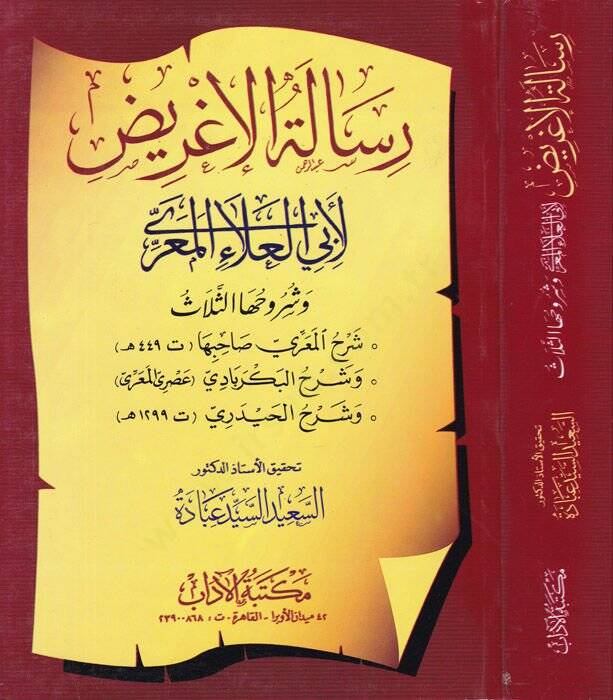 رِسَالَةُ الإغْرِيضِ
لأبي العَلاءِ المَعَرِّي
وَشُرُوحُهَا الثَّلَاثُ
• شَرْحُ المَعَرِّي صَاحِبِهَا (ت ٤٤٩ هـ)
• وَشَرْحُ البَكْرَبَادِيّ (عَصْرِيّ المَعَرِّي)
• وَشَرْحُ الحَيْدَرِيّ (ت ١٢٩٩ هـ)
تحقيق الأستاذ الدكتور
السَّعِيد السَّيِّد عِبَادَة
مكتبة الآداب
٤٢ ميدان الأوبرا - القاهرة - ت : ٢٣٩٠٠٨٦٨
رسالة الإغريض
لأبي العلاء المعري وشروحها الثلاث
تحقيق الأستاذ الدكتور
السعيد السيد عبادة
مكتبة الآداب